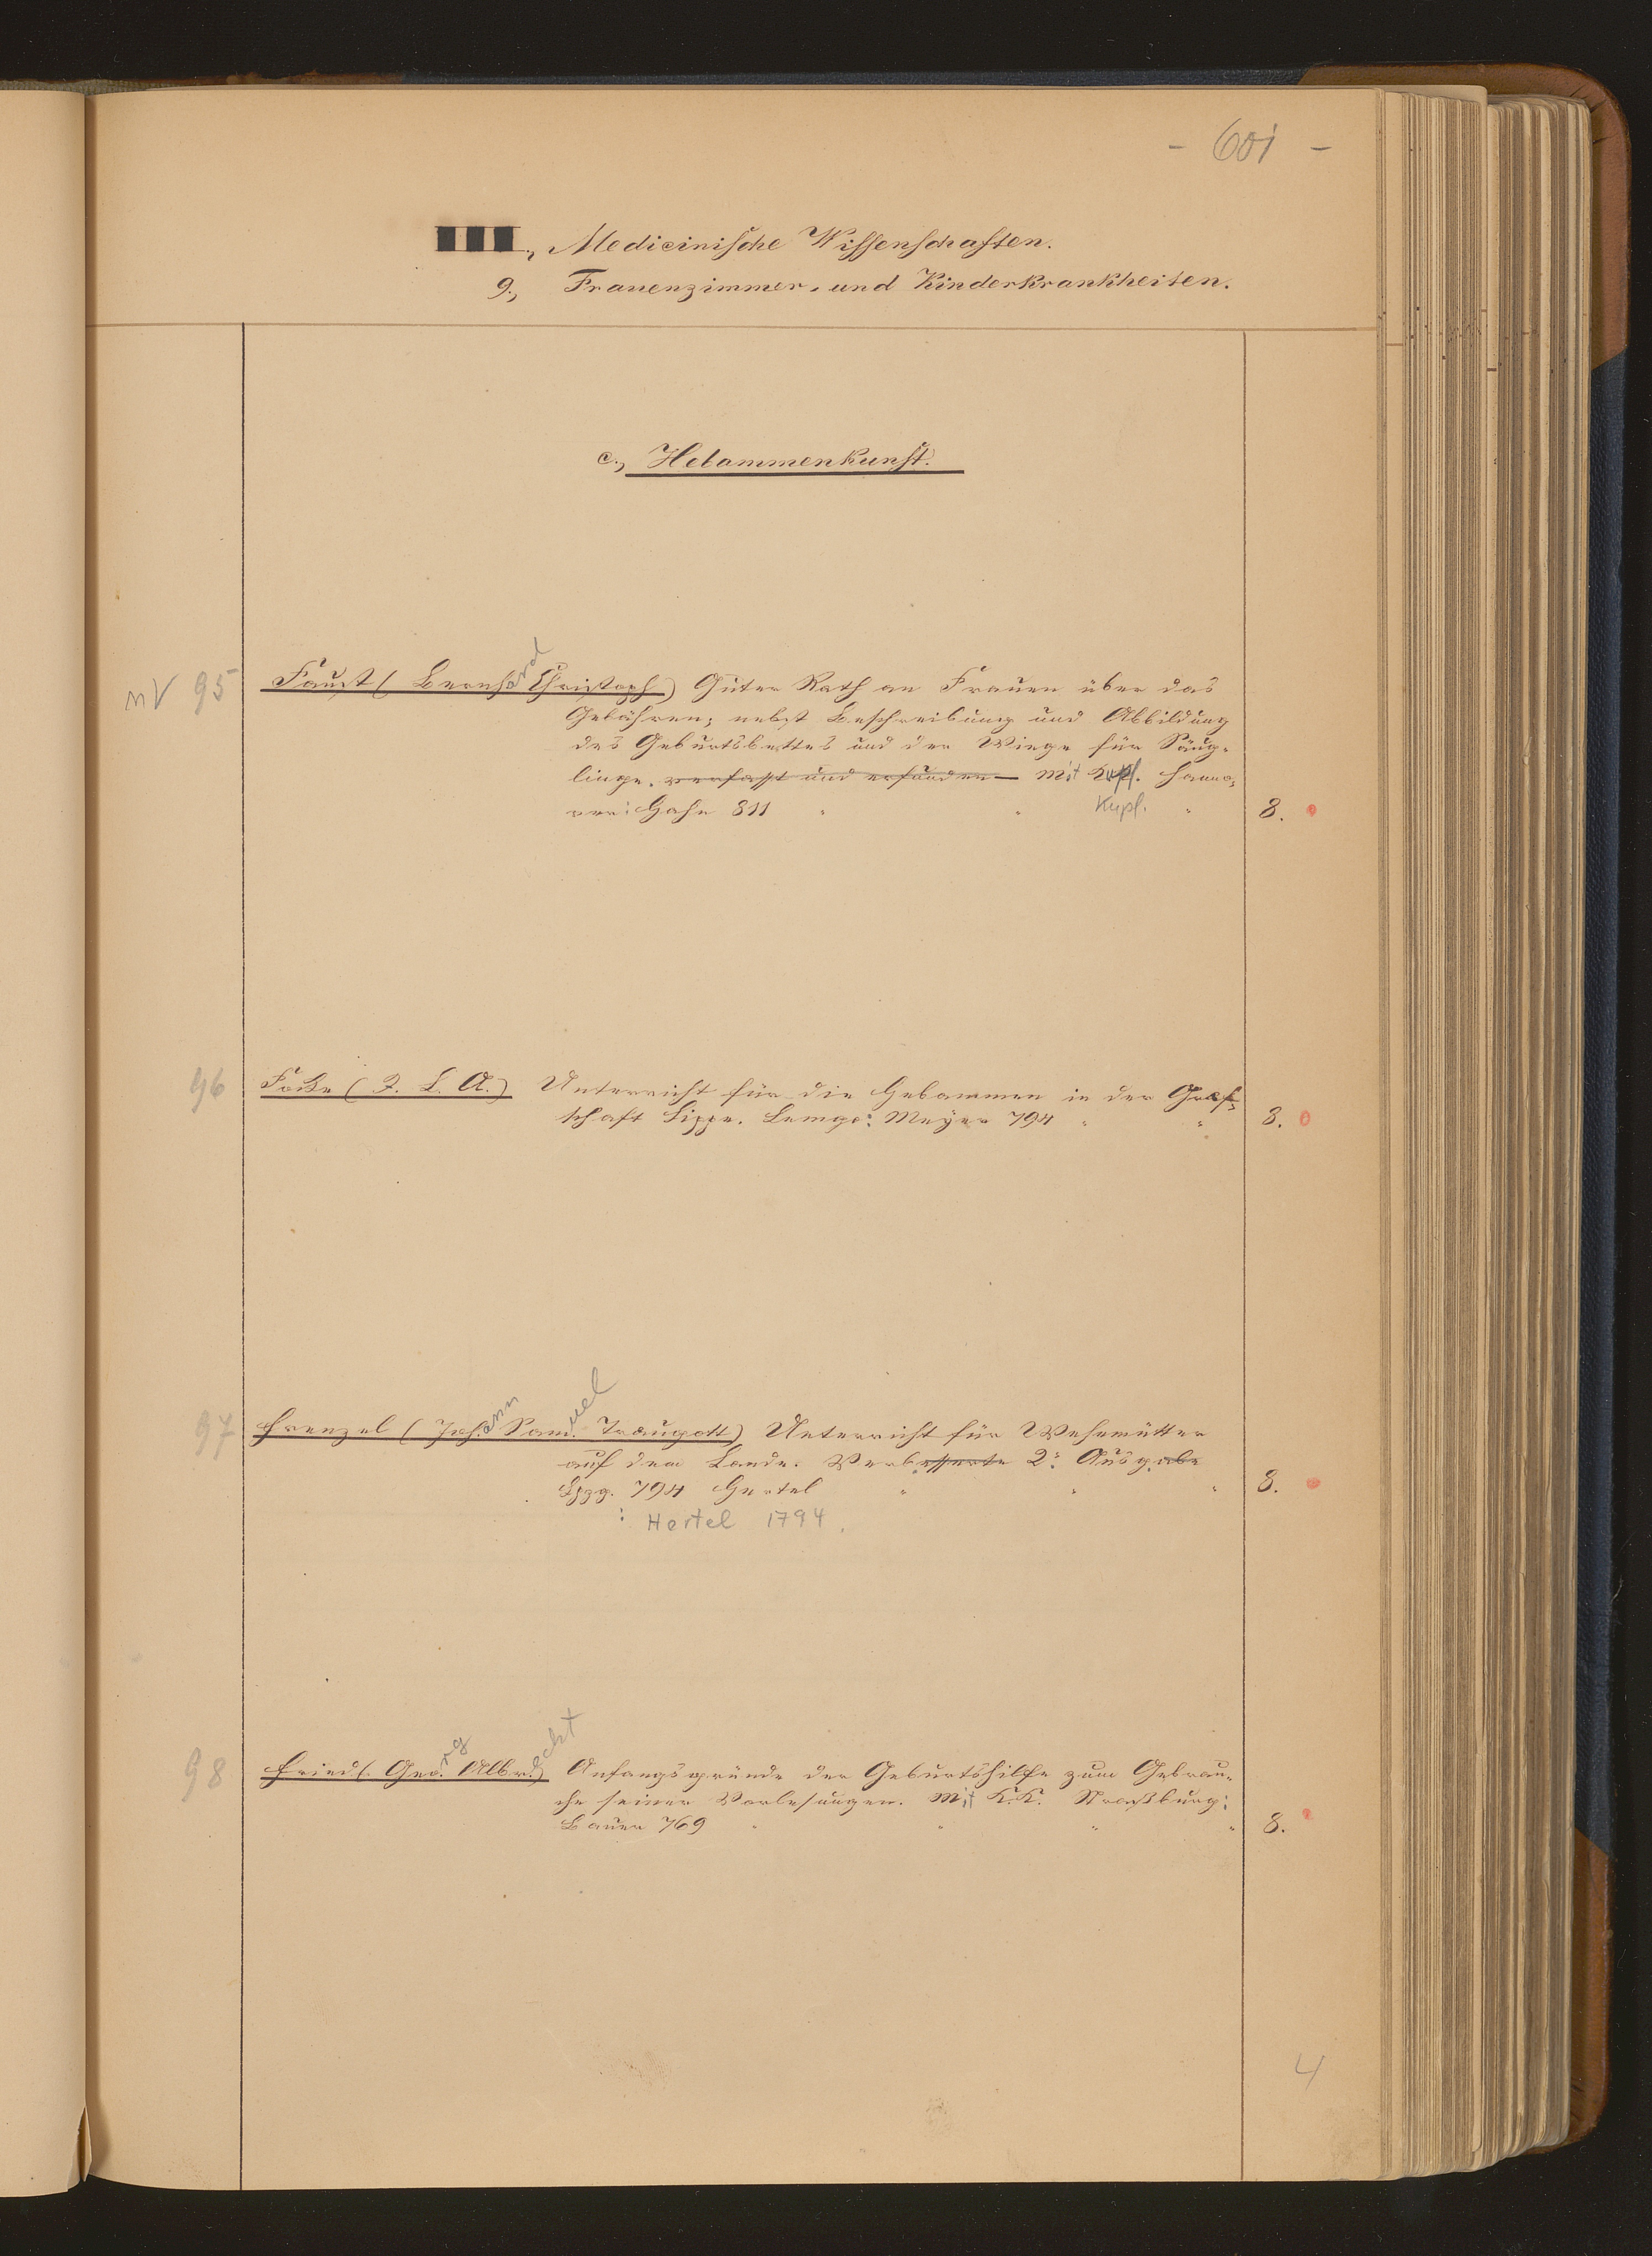 - 601 -
Medicinische Wissenschaften.
9., Frauenzimmer- und Kinderkrankheiten.
c., Hebammenkunst.
nV 95 Faust (Bernhard Christoph) Guter Rath an Frauen über das
Gebähren; nebst Beschreibung und Abbildung
des Geburtsbettes und der Wiege für Säug-
linge. verfasst und erfunden Mit Kupf. Hanno-
ver: Hahn 811 " " Kupf. " 8.
96 Focke (F. L. A.) Unterricht für die Hebammen in der Graf-
schaft Lippe. Lemgo: Meyer 794 " " 8.
97 Frenzel (Johann Samuel Traugott) Unterricht für Wehemütter
auf dem Lande. Verbesserte 2: Ausgabe
Lpzg. 794 Hertel " " " 8.
: Hertel 1794.
98 Fried (Georg Albrecht) Anfangsgründe der Geburtshilfe zum Gebrau-
che seiner Vorlesungen. Mit K.K. Straßburg:
Bauer 769 " " " " 8.
4